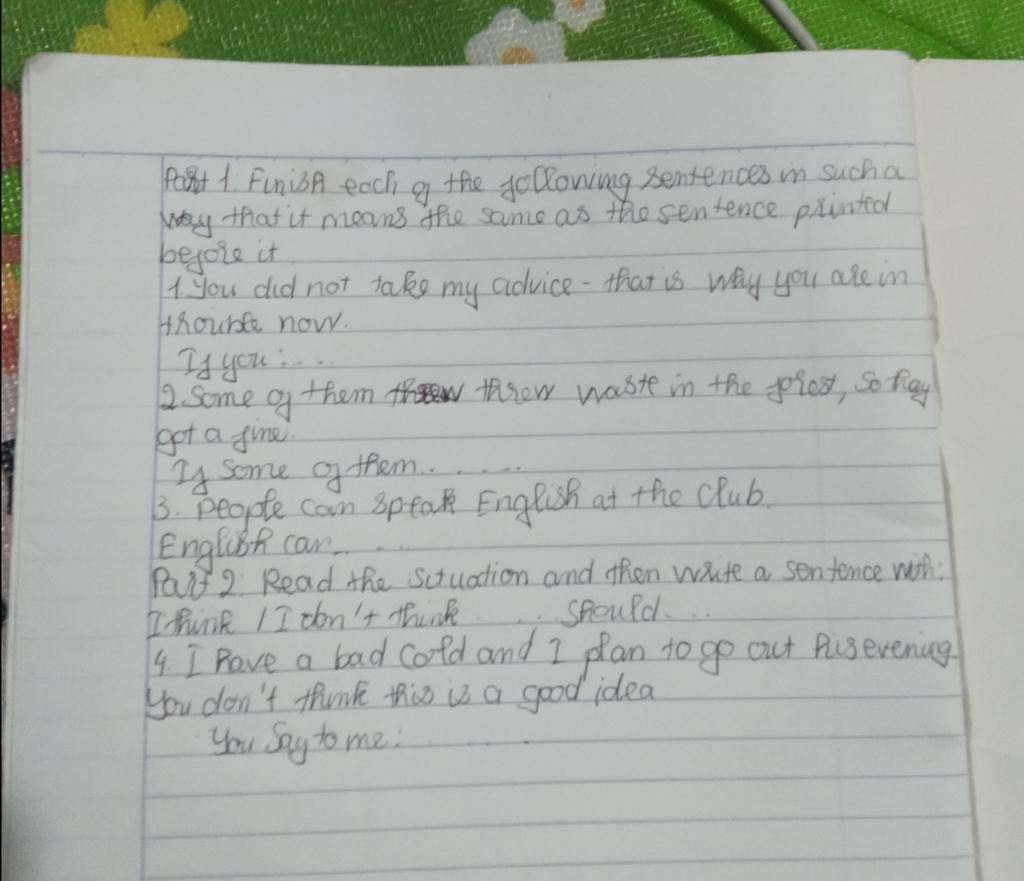 Part 1. Finish each of the following sentences in such a
way that it means the same as the sentence printed
before it
1. You did not take my advice - that is why you are in
trouble now.
If you :....
2. Some of them threw waste in the forest, so they
got a fine.
If some of them.. . . ...
3. People can speak English at the club.
English can... ...
Part 2: Read the situation and then write a sentence with:
I think / I don't think ..... should....
4. I have a bad cold and I plan to go out this evening.
You don't think this is a good idea
You say to me: .........